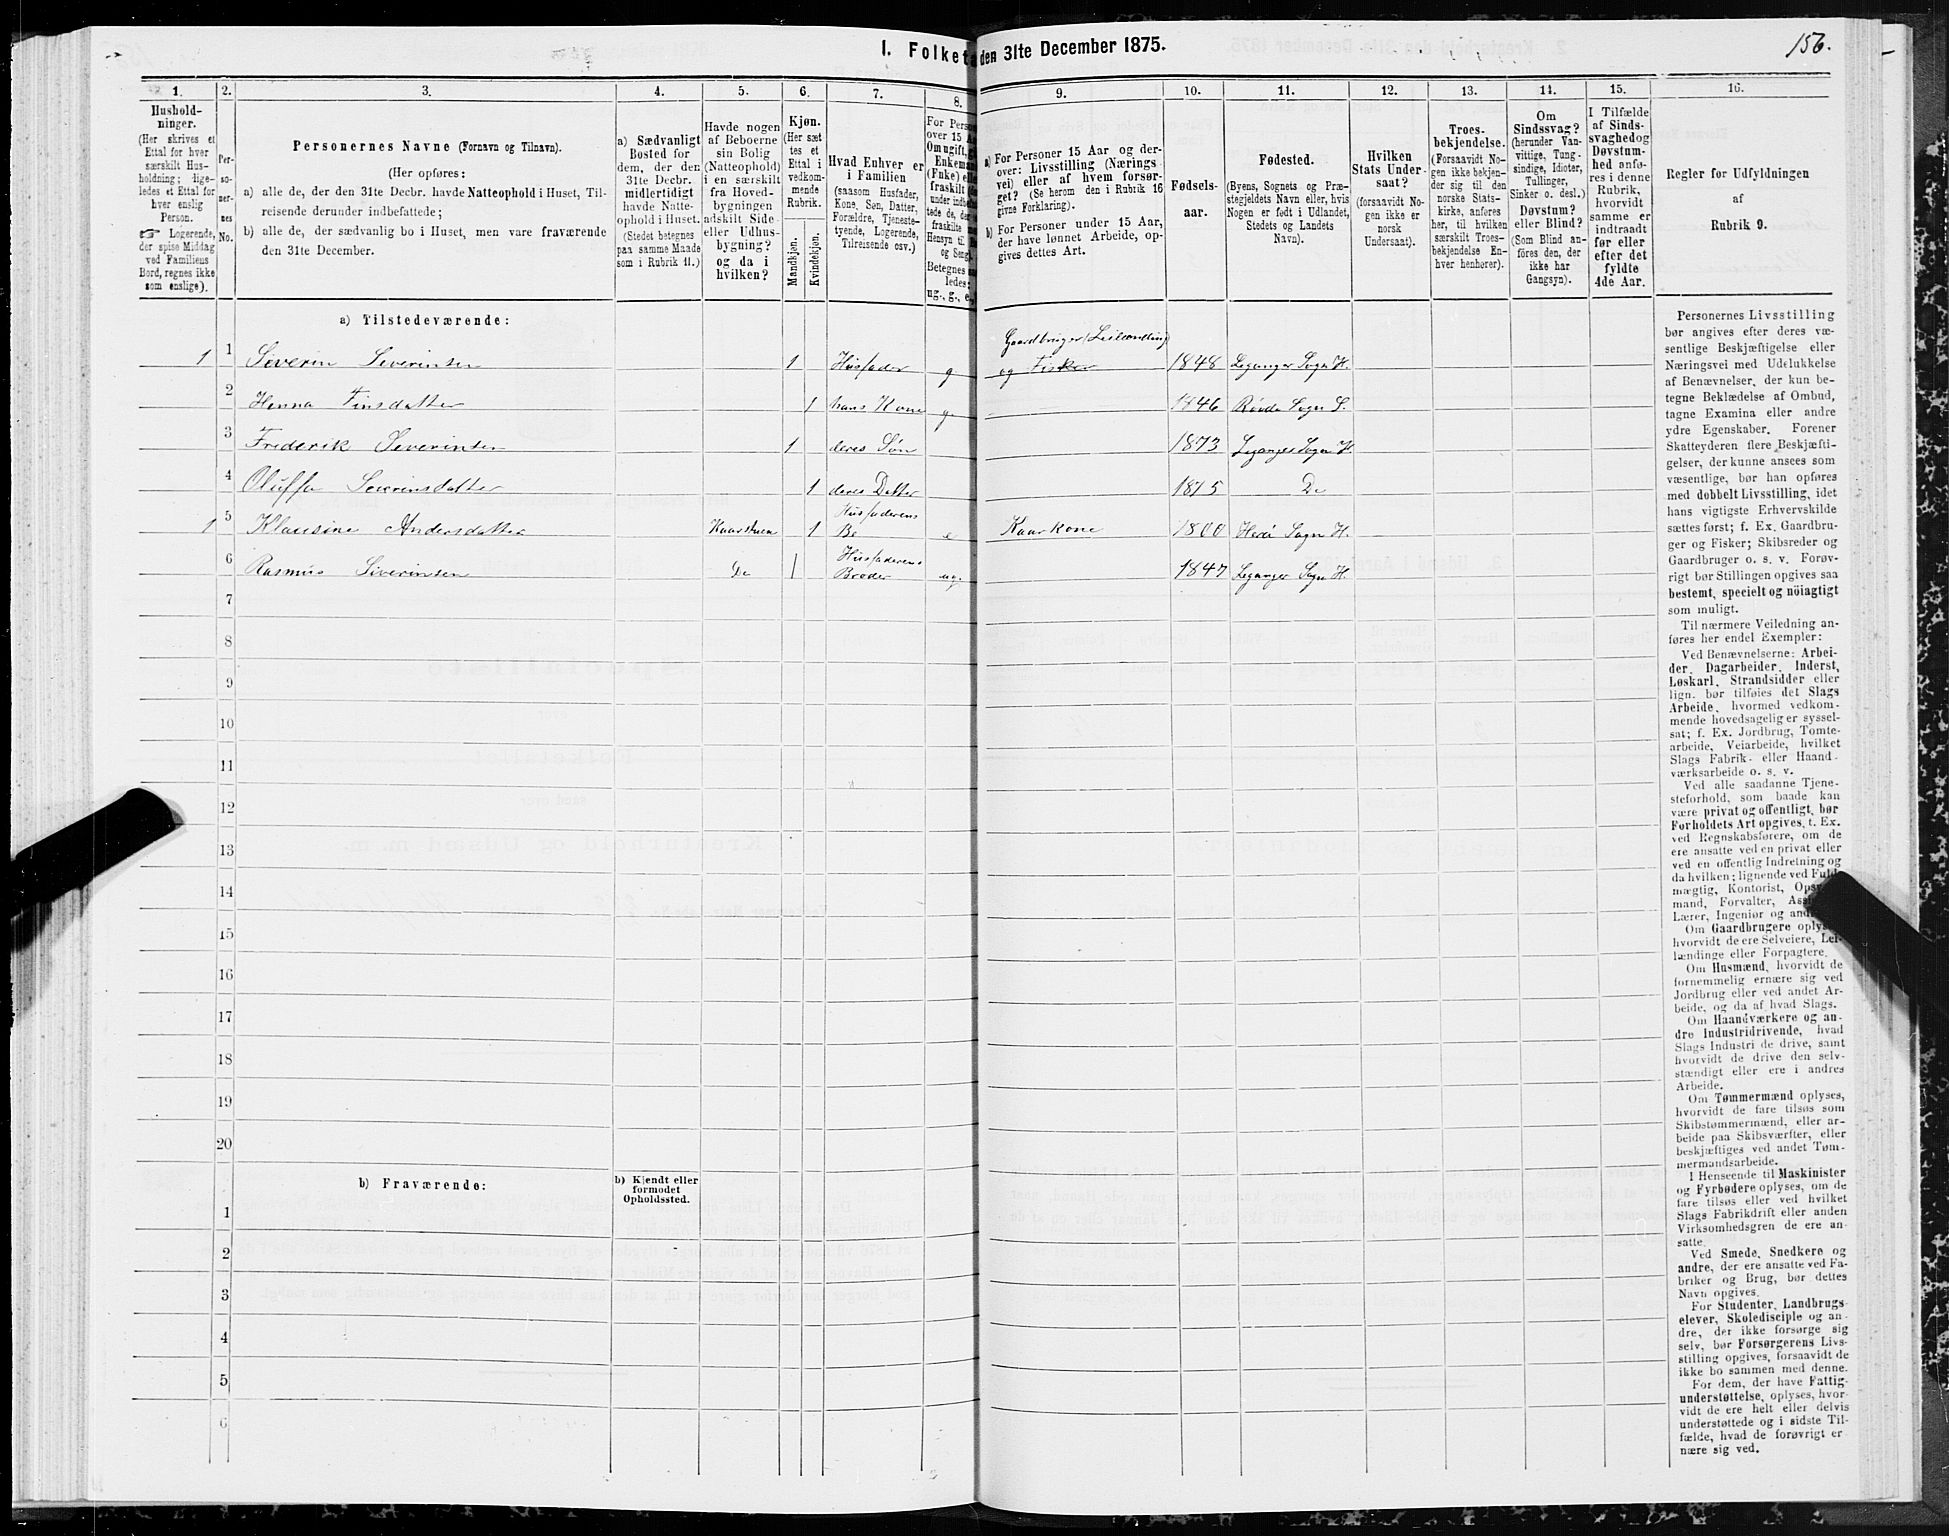 I. Folketa den 31te December 1875.
156.
1. 2. 3. 4. 5. 6. 7. 8. 9. 10. 11. 12. 13. 14. 15. 16.
Hushold-
ninger.
(Her skrives et
Ettal for hver
særskilt Hus-
holdning; lige-
ledes et Ettal for
hver enslig
Person.
☞ Logerende,
der spise Middag
ved Familiens
Bord, regnes ikke
som enslige).
Per-
so-
ner-
nes
No.
Personernes Navne (Fornavn og Tilnavn).
(Her opføres:
a) alle de, der den 31te Decbr. havde Natteophold i Huset, Til-
reisende derunder indbefattede;
b) alle de, der sædvanlig bo i Huset, men vare fraværende
den 31te December.
a) Sædvanligt
Bosted for
dem, der den
31te Decbr.
midlertidigt
havde Natte-
ophold i Huset.
(Stedet betegnes
paa samme Maade
som i Rubrik 11.)
Havde nogen
af Beboerne
sin Bolig
(Natteophold)
i en særskilt
fra Hoved-
bygningen
adskilt Side-
eller Udhus-
bygning?
og da i
hvilken?
Kjøn.
(Her sæt
tes et
Ettal i
vedkom-
mende
Rubrik.
Mandkjøn.
Kvindekjøn.
Hvad Enhver er
i Familien
(saasom Husfader,
Kone, Søn, Datter,
Forældre, Tjeneste-
tyende, Logerende,
Tilreisende osv.)
For Perso
over 15 A
Om ugift, g
Enkeman
(Fru) el
fraskilt
under indbe
tede de, der
fraskilte
Hensyn til
og Seng
Betegnes
ledes:
ug., g., e.,
a) For Personer 15 Aar og der-
over: Livsstilling (Nærings
vei) eller af hvem forsør-
get? (Se herom den i Rubrik 16
givne Forklaring).
b) For Personer under 15 Aar,
der have lønnet Arbeide, op-
gives dettes Art.
Fødsels-
aar.
Fødested.
(Byens, Sognets og Præ-
stegjeldets Navn eller, hvis
Nogen er født i Udlandet,
Stedets og Landets
Navn).
Hvilken
Stats Under-
saat?
(forsaavidt No-
gen ikke er
norsk
Undersaat).
Troes-
bekjendelse.
(Forsaavidt No-
gen ikke bekjen-
der sig til den
norske Stats-
kirke, anføres
her, til hvilken
særskilt Troes-
bekjendelse En-
hver henhører).
Om
Sindssvag?
(herunder Van-
vittige, Tung-
sindige, Idioter,
Tullinger,
Sinker o. desl.)
Døvstum?
eller Blind?
(Som Blind an-
føres den, der
ikke har
Gangsyn).
I Tilfælde
af Sinds-
svaghed og
Døvstum-
hed anfø-
res i denne
Rubrik,
hvorvidt
samme er
indtraadt
før eller
efter det
fyldte
4de Aar.
Regler for Udfyldningen
af
Rubrik 9.
a) Tilstedeværende:
1 1 Siverin Siverinsen 1 Husfader g Gaardbruger (Leilænding)
og Fisker 1848 Leganger Sogn H.
2 Hanna Finsdatter 1 hans Kone g 1846 Rovde Sogn S.
3 Frederik Severinsen 1 deres Søn 1873 Leganger Sogn H.
4 Oluffa Severinsdatter 1 deres Datter 1875 Do
1 5 Klausine Andersdatter Kaarstuen 1 Husfaderens
Be e Kaarkone 1800 Herø Sogn H.
6 Rasmus Siverinsen Do 1 Husfaderens
Broder ug. 1847 Leganger Sogn H.
7
8
9
10
11
12
13
14
15
16
17
18
19
20
b) Fraværende:
b) Kjendt eller
formodet
Opholdssted.
1
2
3
4
5
6
Personernes Livsstilling
bør angives efter deres væ-
sentlige Beskjæftigelse eller
Næringsvei med Udelukkelse
af Benævnelser, der kun be-
tegne Beklædelse af Ombud,
tagne Examina eller andre
ydre Egenskaber. Forener
Skatteyderen flere Beskjæfti-
gelser, der kunne ansees som
væsentlige, bør han opføres
med dobbelt Livsstilling, idet
hans vigtigste Erhvervskilde
sættes først; f. Ex. Gaardbru-
ger og Fisker; Skibsreder og
Gaardbruger o. s. v. Forøv-
rigt bør Stillingen opgives saa
bestemt, specielt og nöiagtigt
som muligt.
Til nærmere Veiledning an-
føres her endel Exempler:
Ved Benævnelserne: Arbei-
der, Dagarbeider, Inderst,
Løskarl, Strandsidder eller
lign. bør tilføies det Slags
Arbeide, hvormed vedkom-
mende hovedsagelig er syssel-
sat; f. Ex. Jordbrug, Tomte-
arbeide, Veiarbeide, hvilket
Slags Fabrik- eller Haand-
værksarbeide o. s. v.
Ved alle saadanne Tjene-
steforhold, som baade kan
være privat og offentligt, bør
Forholdets Art opgives, t. Ex.
ved Regnskabsførere, om de
ere ansatte ved en privat eller
ved en offentlig Indretning og
da hvilken; lignende ved Fuld-
mægtig, Kontorist, Opsy
mand, Forvalter, Ass
Lærer, Ingeniør og and
Om Gaardbrugere oplys
hvorvidt de ere Selveiere, Lei-
lændinge eller Forpagtere.
Om Husmænd, hvorvidt de
fornemmelig ernære sig ved
Jordbrug eller ved andet Ar-
beide, og da af hvad Slags.
Om Haandværkere og an-
dre Industridrivende, hvad
Slags Industri de drive, samt
hvorvidt de drive den selv-
stændigt eller ere i andres
Arbeide.
Om Tømmermænd oplyses,
hvorvidt de fare tilsøs som
Skibstømmermænd, eller ar-
beide paa Skibsværfter, eller
beskjæftiges ved andet Tøm-
mermandsarbeide.
I Henseende til Maskinister
og Fyrbødere oplyses, om de
fare tilsøs eller ved hvilket
Slags Fabrikdrift eller anden
Virksomhedsgren de ere an-
satte.
Ved Smede, Snedkere og
andre, der ere ansatte ved Fa-
briker og Brug, bør dettes
Navn opgives.
For Studenter, Landbrugs-
elever, Skoledisciple og an-
dre, der ikke forsørge sig
selv, bør Forsørgerens Livs-
stilling opgives, forsaavidt de
ikke bo sammen med denne.
For dem, der have Fattig-
understøttelse, oplyses, hvor-
vidt de ere helt eller delvis
understøttede og i sidste Til-
fælde, hvad de forøvrigt er
nære sig ved.